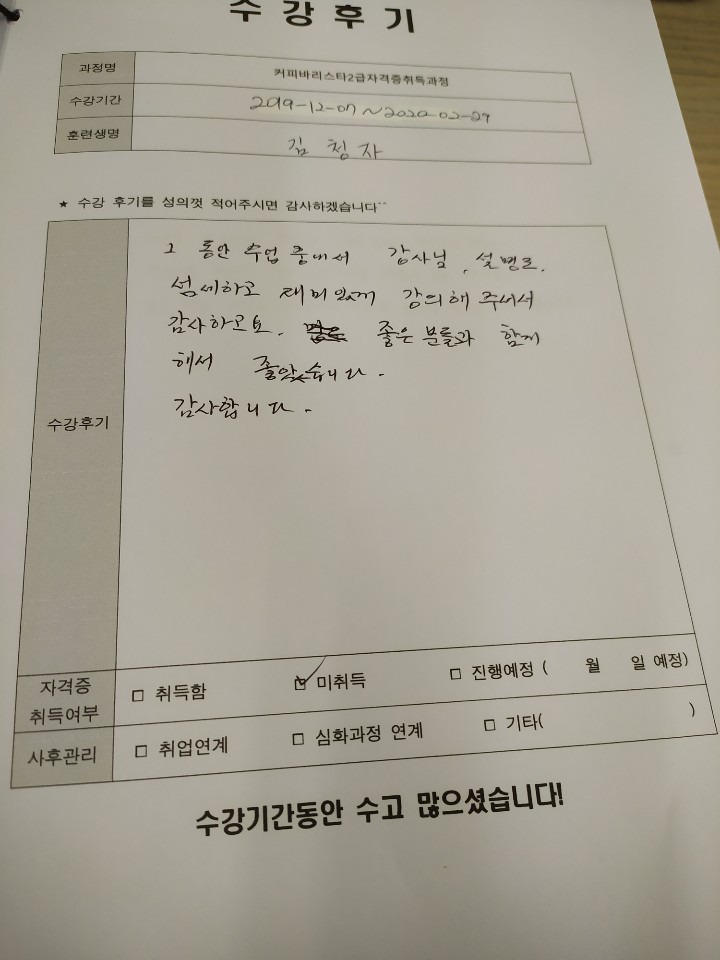 수 강 후 기
과정명 커피바리스타2급자격증취득과정
수강기간 2019-12-07 ~ 2020-02-29
훈련생명 김 칭 자
★ 수강 후기를 성의껏 적어주시면 감사하겠습니다^^
수강후기
그 동안 수업 중에서 강사님, 설명도.
섬세하고 재미있게 강의해 주셔서
감사하고요. 좋은 분들과 함께
해서 좋았습니다.
감사합니다.
자격증 취득여부 □ 취득함 ☑ 미취득 □ 진행예정 ( 월 일 예정)
사후관리 □ 취업연계 □ 심화과정 연계 □ 기타( )
수강기간동안 수고 많으셨습니다!